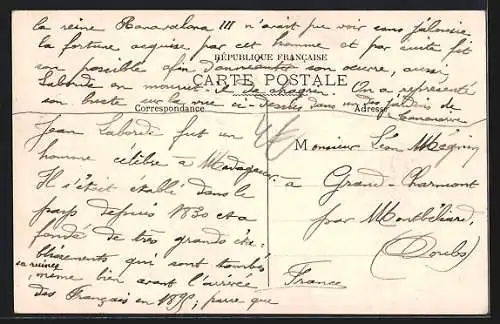 la reine Ranavalona III n'avait pu voir sans jalousie
la fortune acquise par cet homme et par suite fit
son possible afin d' son œuvre, aussi
RÉPUBLIQUE FRANÇAISE
CARTE POSTALE
Laborde en mourut-il de chagrin. On a représenté
son buste sur la vue ci-dessus dans un des jardins de
Tananarive
Correspondance
Adresse
Jean Laborde fut un
homme célèbre à Madagascar.
Il s'était établi dans le
pays depuis 1830 et a
fondé de très grands éta-
blissements qui sont tombés
en ruines
même bien avant l'arrivée
des Français en 1895; parce que
Monsieur Léon Méquin
à Grand-Charmont
par Montbéliard,
(Doubs)
France